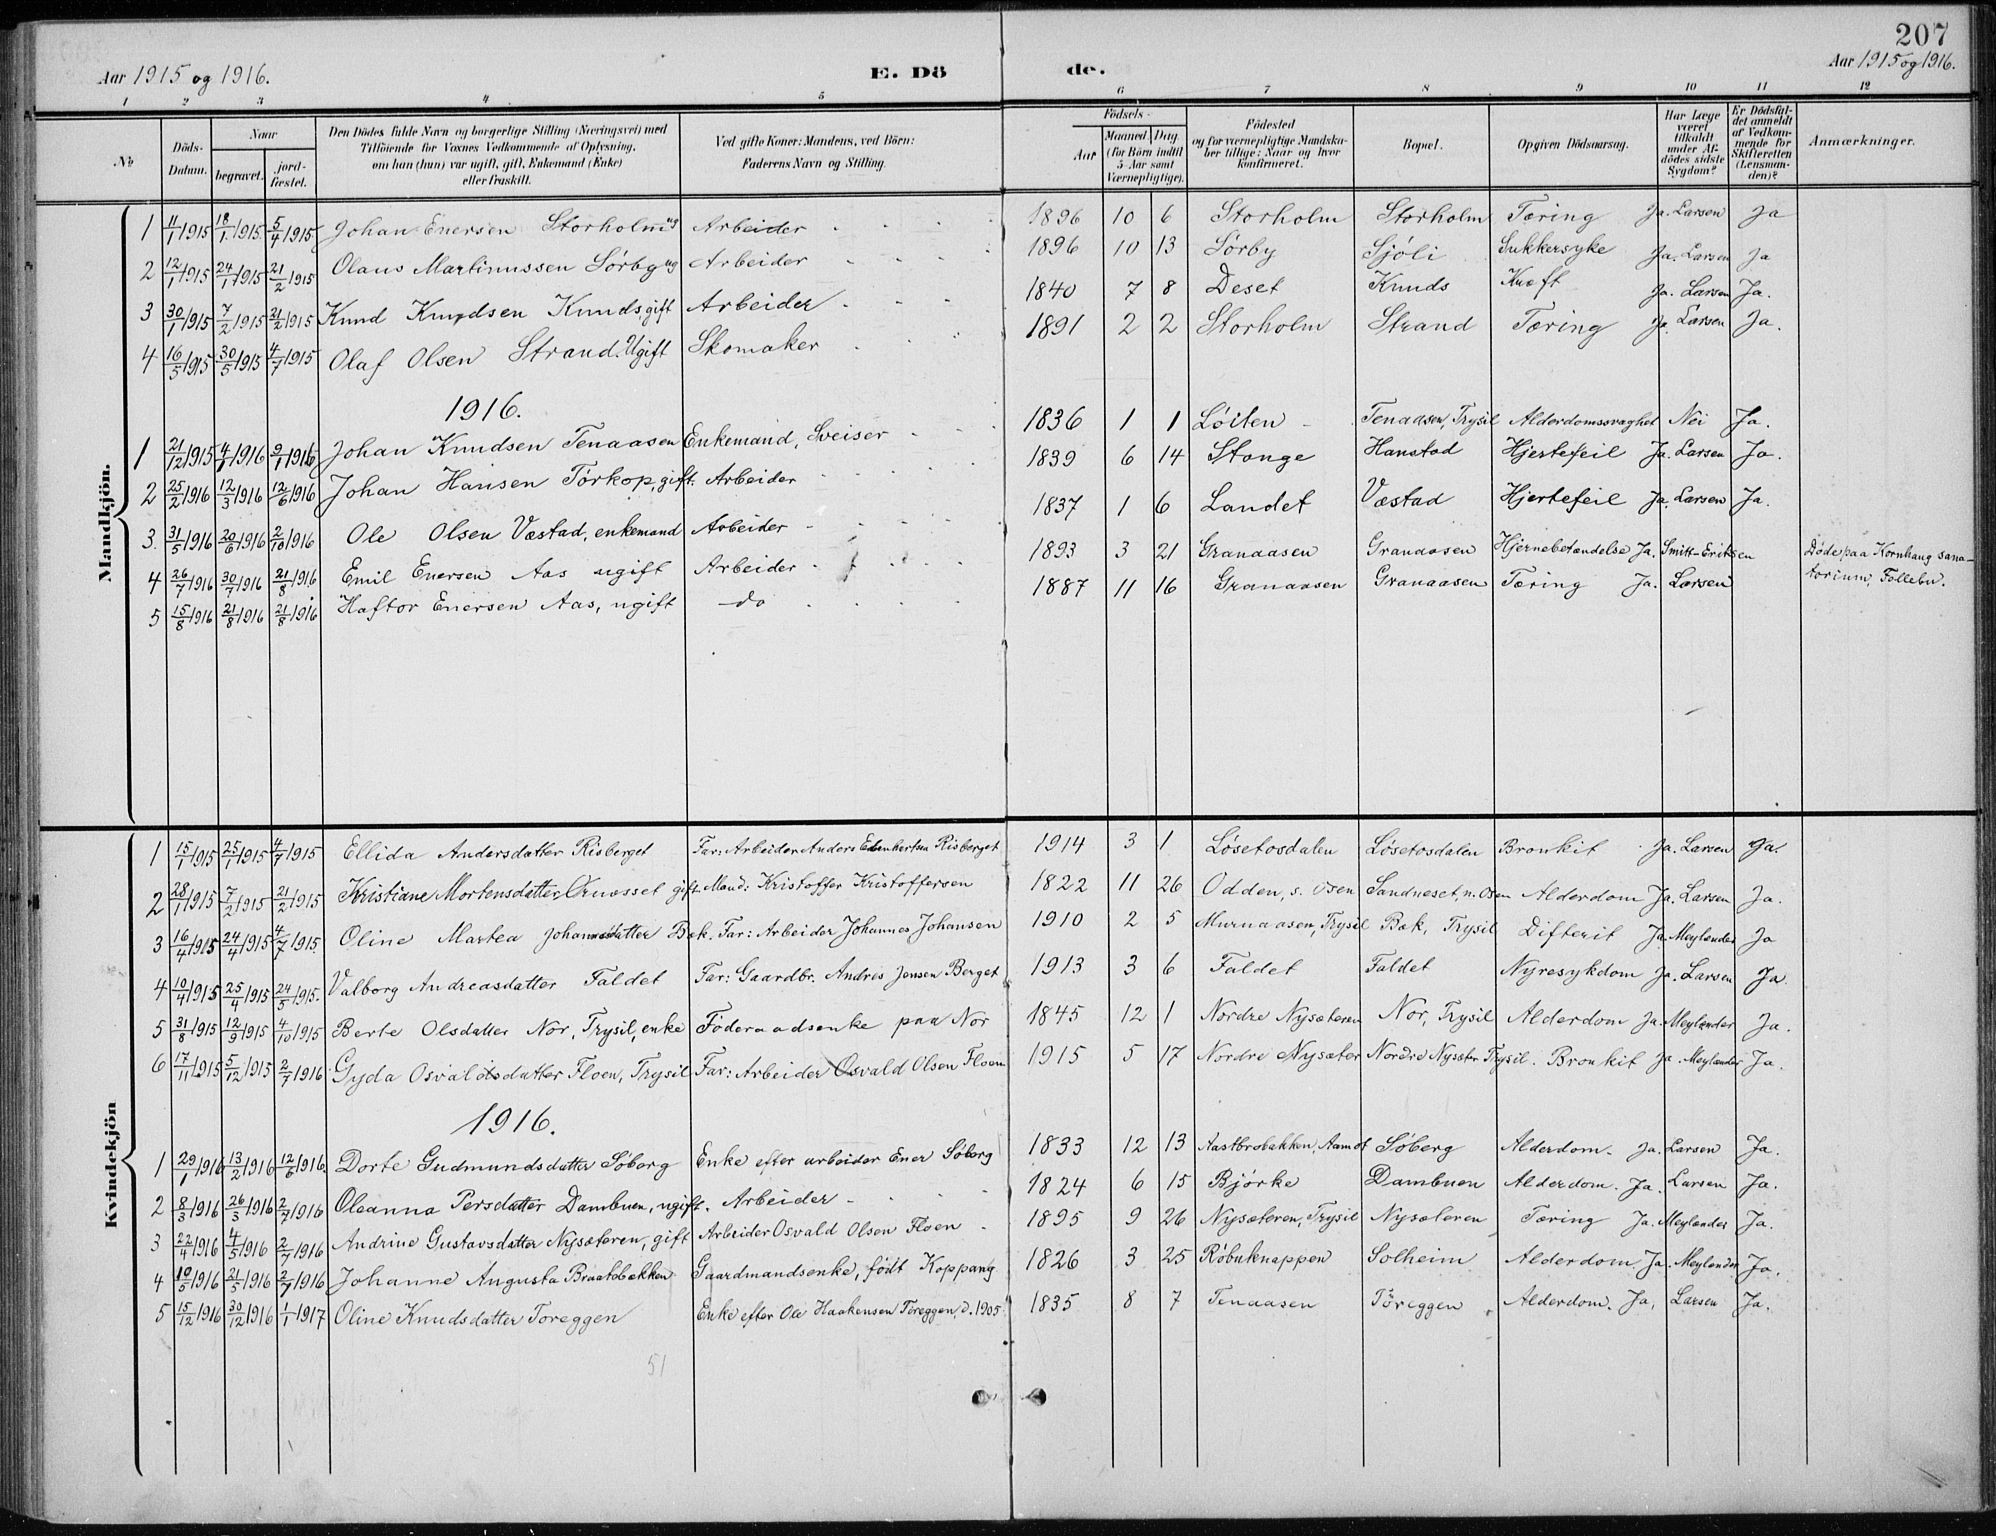 207
Aar 1915 og 1916. E. Dö de. Aar 1915 og 1916.
1 2 3 4 5 6 7 8 9 10 11 12
No
Döds-Datum.
Naar
begravet.
jord-fæstet.
Den Dödes fulde Navn og borgerlige Stilling (Næringsvei) med
Tilföiende for Voxnes Vedkommende af Oplysning,
om han (hun) var ugift, gift, Enkemand (Enke)
eller fraskilt.
Ved gifte Koner: Mandens, ved Börn:
Faderens Navn og Stilling.
Födsels-
Aar
Maaned Dag
(for Börn indtil
5 Aar samt
Værnepligtige).
Födested
og for værnepligtige Mandska-
ber tillige: Naar og hvor
konfirmeret.
Bopæl.
Opgiven Dödsaarsag.
Har Læge
været
tilkaldt
under Af-
dödes sidste
Sygdom?
Er Dödsfal-
det anmeldt
af Vedkom-
mende for
Skifteretten
(Lensman-
den)?
Anmærkninger.
Mandkjön.
1 11/1 1915 18/1 1915 5/4 1915 Johan Enersen Storholm ug Arbeider 1896 10 6 Storholm Storholm Tæring Ja. Larsen Ja
2 12/1 1915 24/1 1915 21/2 1915 Olaus Martinussen Sörby ug Arbeider 1896 10 13 Sörby Sjöli Sukkersyke Ja. Larsen Ja
3 30/1 1915 7/2 1915 21/2 1915 Knud Knudsen Knuds gift Arbeider 1840 7 8 Deset Knuds Kræft Ja. Larsen Ja.
4 16/5 1915 30/5 1915 4/7 1915 Olaf Olsen Strand. Ugift Skomaker 1891 2 2 Storholm Strand Tæring Ja. Larsen Ja.
1916.
1 21/12 1915 4/1 1916 9/1 1916 Johan Knudsen Tenaasen Enkemand, Sveiser 1836 1 1 Löiten Tenaasen, Trysil Alderdomssvaghet Nei Ja.
2 25/2 1916 12/3 1916 12/6 1916 Johan Hansen Törkop, gift. Arbeider 1839 6 14 Stange Hanstad Hjertefeil Ja. Larsen Ja.
3. 31/5 1916 20/6 1916 2/10 1916 Ole Olsen Væstad, enkemand Arbeider 1837 1 6 Landet Væstad Hjertefeil Ja. Larsen Ja.
4 26/7 1916 30/7 1916 21/8 1916 Emil Enersen Aas ugift Arbeider 1893 3 21 Granaasen Granaasen Hjernebetændelse Ja. Smitt-Eriksen Döde paa Kornhaug sana-
torium, Follebu.
5 15/8 1916 21/8 1916 21/8 1916 Haftor Enersen Aas, ugift do 1887 11 16 Granaasen Granaasen Tæring Ja. Larsen
Kvindekjön
1 15/1 1915 25/1 1915 4/7 1915 Ellida Andersdatter Risberget Far: Arbeider Anders Risberget 1914 3 1 Løsetosdalen Løsetosdalen Bronkit Ja. Larsen Ja.
2 28/1 1915 7/2 1915 21/2 1915 Kristiane Mortensdatter, gift. Mand: Kristoffer Kristoffersen 1822 11 26 Odden, s. Osen Sandneset, n. Osen Alderdom Ja. Larsen Ja.
3 16/4 1915 24/4 1915 4/7 1915. Oline Martea Johannesdatter Bæk. Far: Arbeider Johannes Johansen 1910 2 5 Murnaasen, Trysil Bæk, Trysil Difterit Ja. Meylænder Ja
4 10/4 1915 25/4 1915 24/5 1915. Valborg Andreasdatter Faldet Far: Gaardbr. Andres Jensen Berget 1913 3 6 Faldet Faldet Nyresykdom Ja. Larsen Ja
5 31/8 1915 12/9 1915 4/10 1915 Berte Olsdatter Nor, Trysil, enke Föderaadsenke paa Nor 1845 12 1 Nordre Nysæteren Nor, Trysil Alderdom Ja. Meylænder Ja.
6 17/11 1915 5/12 1915 2/7 1916 Gyda Osvaldsdatter Floen, Trysil Far: Arbeider Osvald Olsen Floen 1915 5 17 Nordre Nysæter Nordre Nysæter Trysil. Bronkit Ja. Meylænder Ja.
1916.
1 29/1 1916 13/2 1916 12/6 1916. Dorte Gudmundsdatter Söberg Enke efter arbeider Ener Söberg 1833 12 13 Aastbrobakken, Aamot Söberg Alderdom. Ja. Larsen Ja.
2 8/3 1916 26/3 1916 2/7 1916 Oleanna Persdatter Dambuen, ugift. Arbeider 1824 6 15 Bjørke Dambuen Alderdom. Ja. Larsen Ja.
3 22/4 1916 4/5 1916 2/7 1916 Andrine Gustavsdatter Nysæteren, gift Arbeider Osvald Olsen Floen 1895 9 26 Nysæteren, Trysil Nysæteren Tæring Ja. Meylænder Ja.
4 10/5 1916 21/5 1916 2/7 1916 Johanne Augusta Braatabakken Gaardmandsenke, født Koppang 1826 3 25 Röbuknappen Solheim Alderdom Ja. Meylænder Ja.
5 15/12 1916 30/12 1916 1/1 1917 Oline Knudsdatter Toreggen Enke efter Ole Haakensen Toreggen, d. 1905. 1835 8 7 Tenaasen Töreggen Alderdom. Ja. Larsen Ja.
51